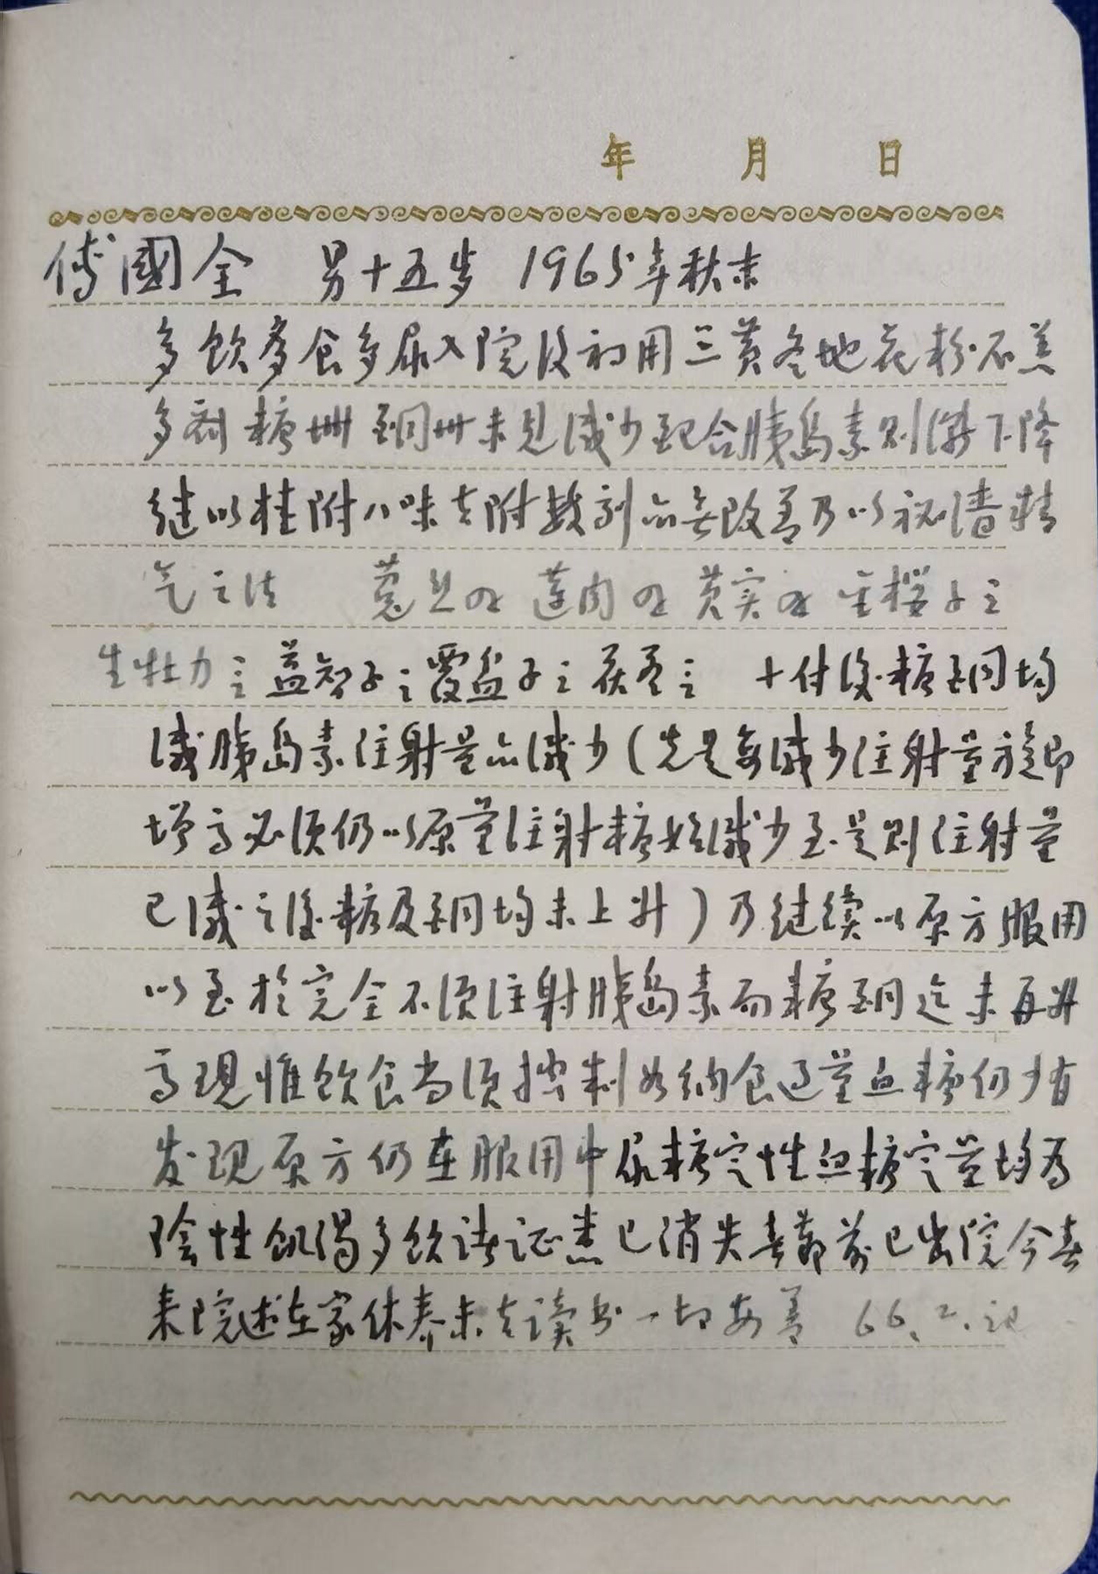 年 月 日
傅國全 男十五岁 1965年秋末
多饮多食多尿入院后初用三黄冬地花粉石羔
多剂糖卌 酮卌未见减少配合胰岛素则併下降
继以桂附八味去附数剂亦无改善乃以秘清精
气之法 菟丝 莲肉 芡实 金樱子
生牡力 益智子 覆盆子 茯苓 十付後糖酮均
减胰岛素注射量亦减少(先是每减少注射量方即
增高必须仍以原量注射糖始减少至是则注射量
已减之後糖及酮均未上升)乃继续以原方服用
以至於完全不须注射胰岛素而糖酮迄未再升
高现惟饮食尚须控制如纳食过量血糖仍少有
发现原方仍在服用中尿糖定性血糖定量均为
陰性飢渴多饮诸证悉已消失春节前已出院今春
来院述在家休养未去读书一切安善 66.二.记